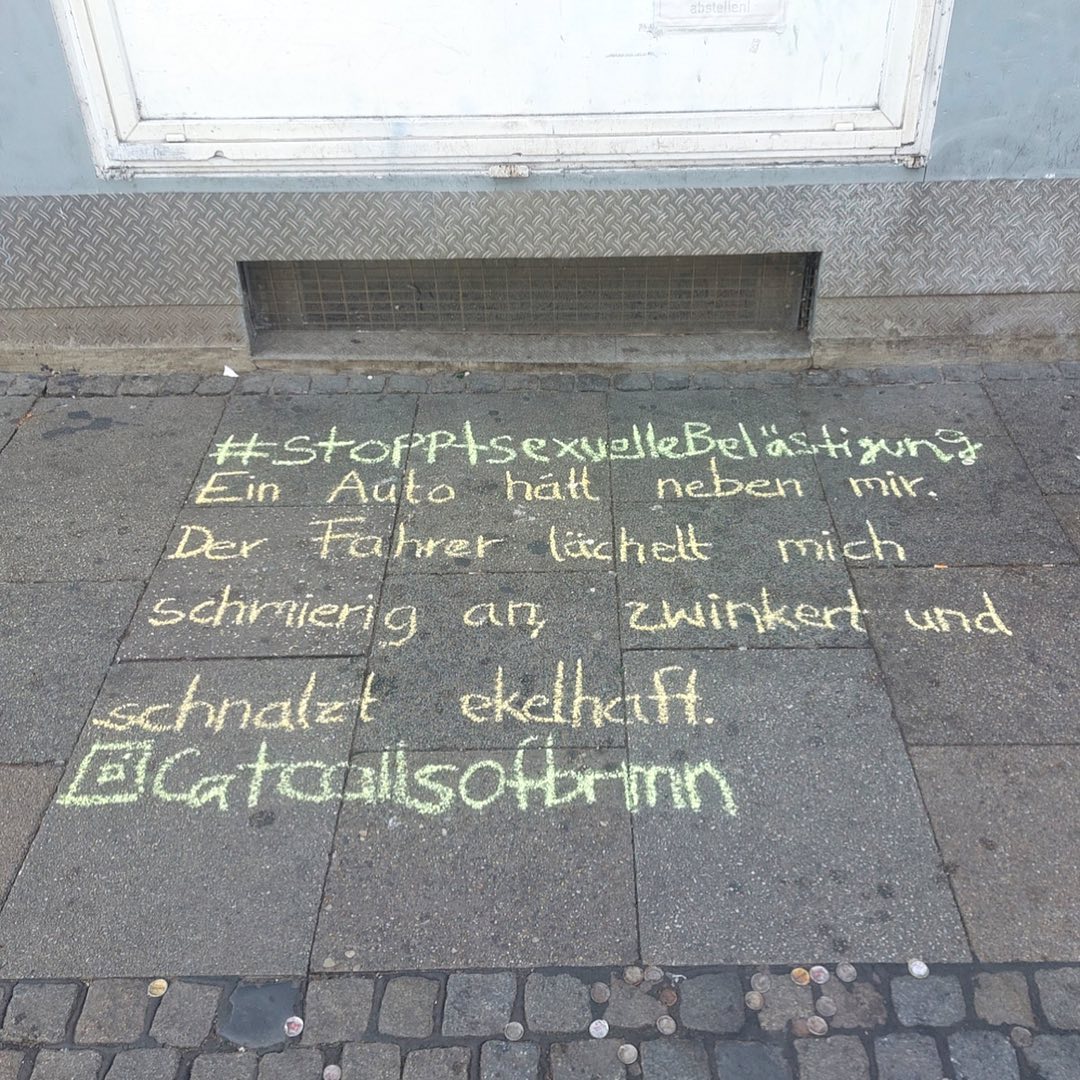 abstellen!
#stopptsexuelleBelästigung
Ein Auto hält neben mir.
Der Fahrer lächelt mich
schmierig an, zwinkert und
schnalzt ekelhaft.
@Catcallsofbrmn